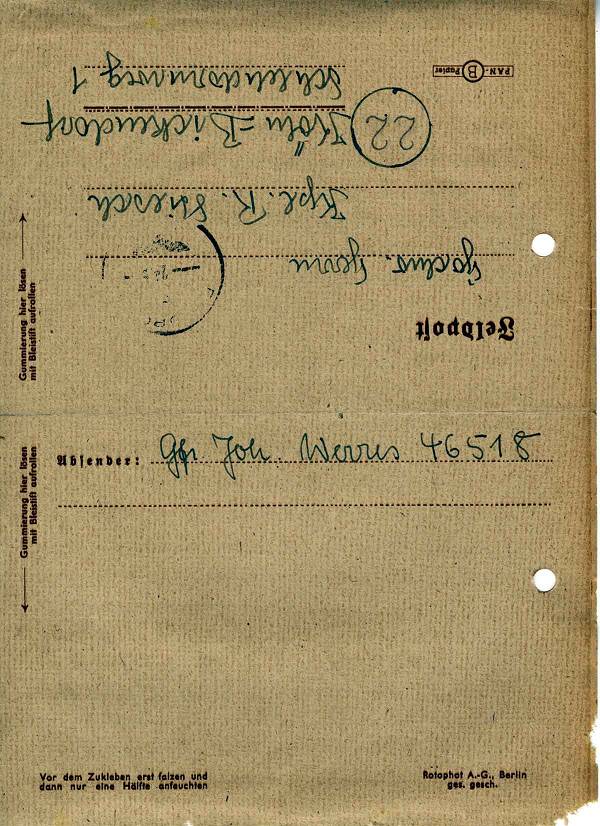 Feldpost
Hochw. Herrn
Kpl. R.
22 Köln=Bickendorf
Schlehdornweg 1
PAN- B Papier
Gummierung hier lösen
mit Bleistift aufrollen
Gummierung hier lösen
mit Bleistift aufrollen
Absender: Gfr Joh. Werres 46518
Vor dem Zukleben erst falzen und
dann nur eine Hälfte anfeuchten
Rotophot A.-G., Berlin
ges. gesch.